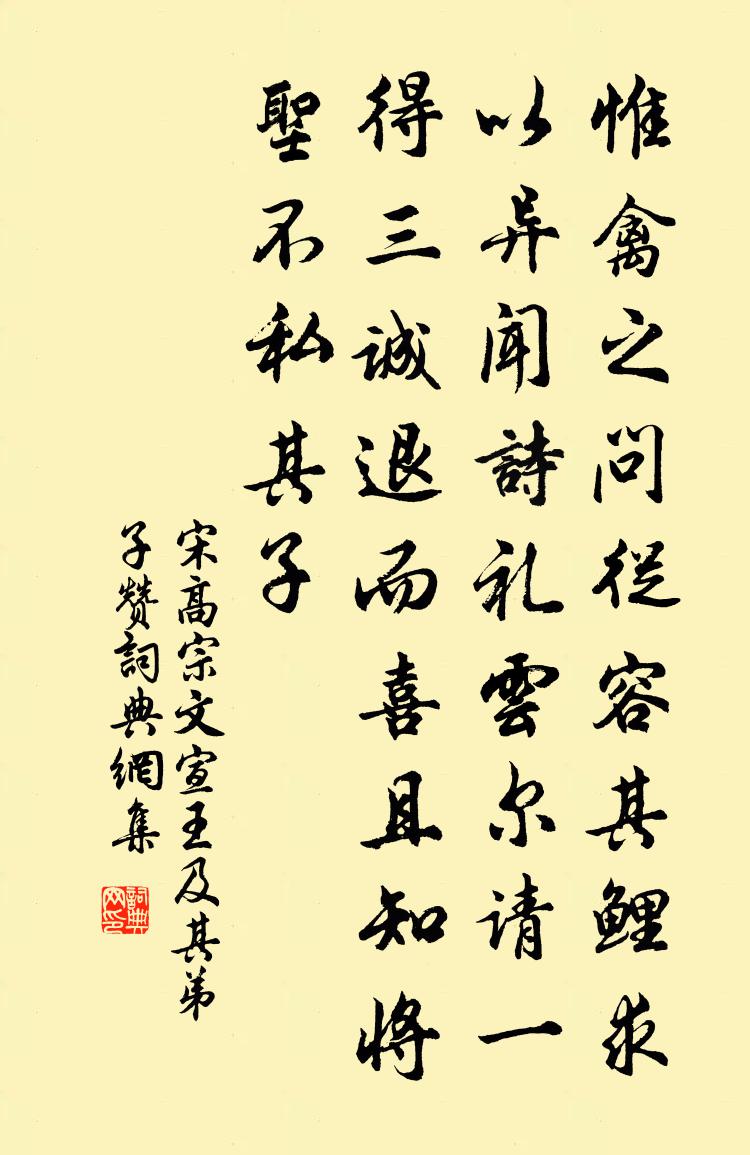 惟禽之问从容其鲤求
以异闻詩礼雲尔请一
得三誠退而喜且知将
聖不私其子
宋高宗文宣王及其弟
子赞詞典網集
詞典
网印